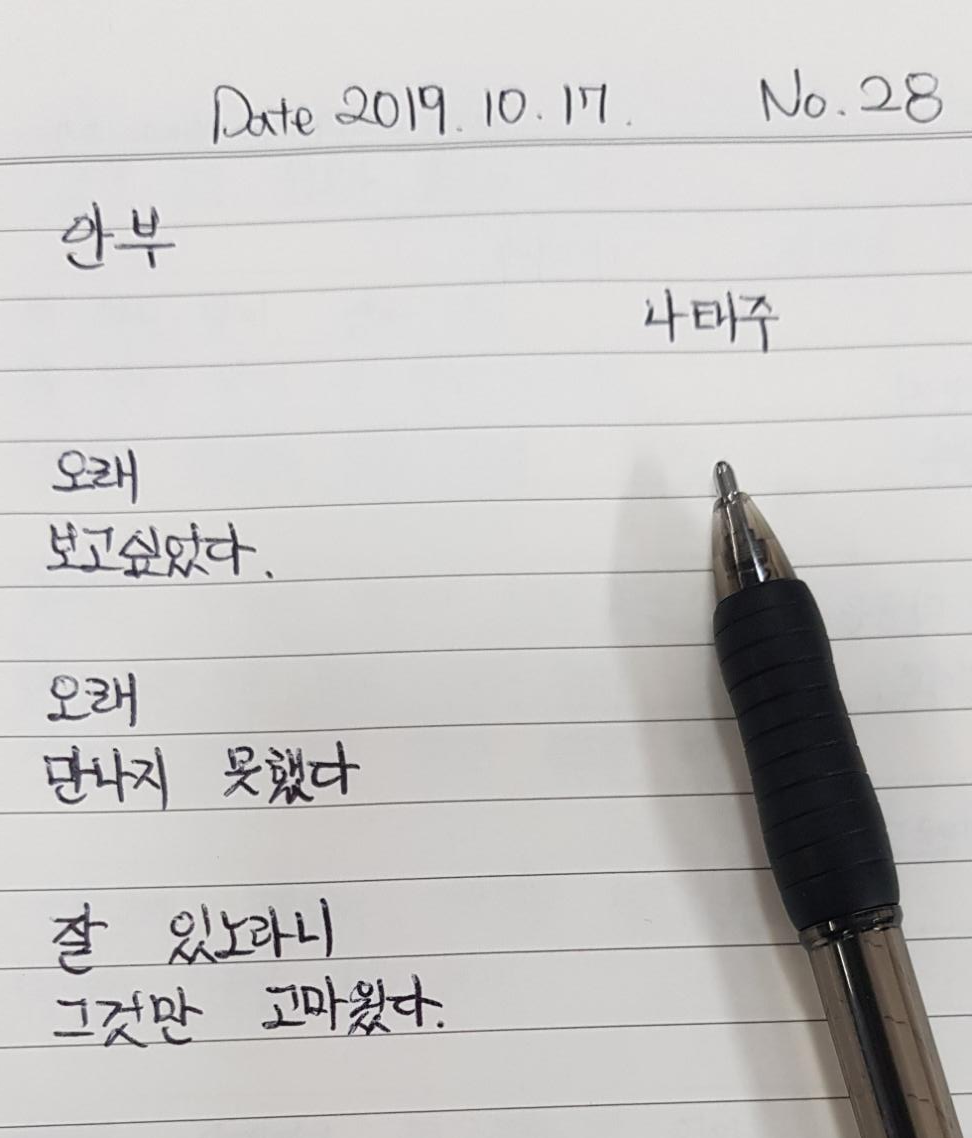 Date 2019. 10. 17. No. 28
안부
나태주
오래
보고싶었다.
오래
만나지 못했다
잘 있노라니
그것만 고마웠다.